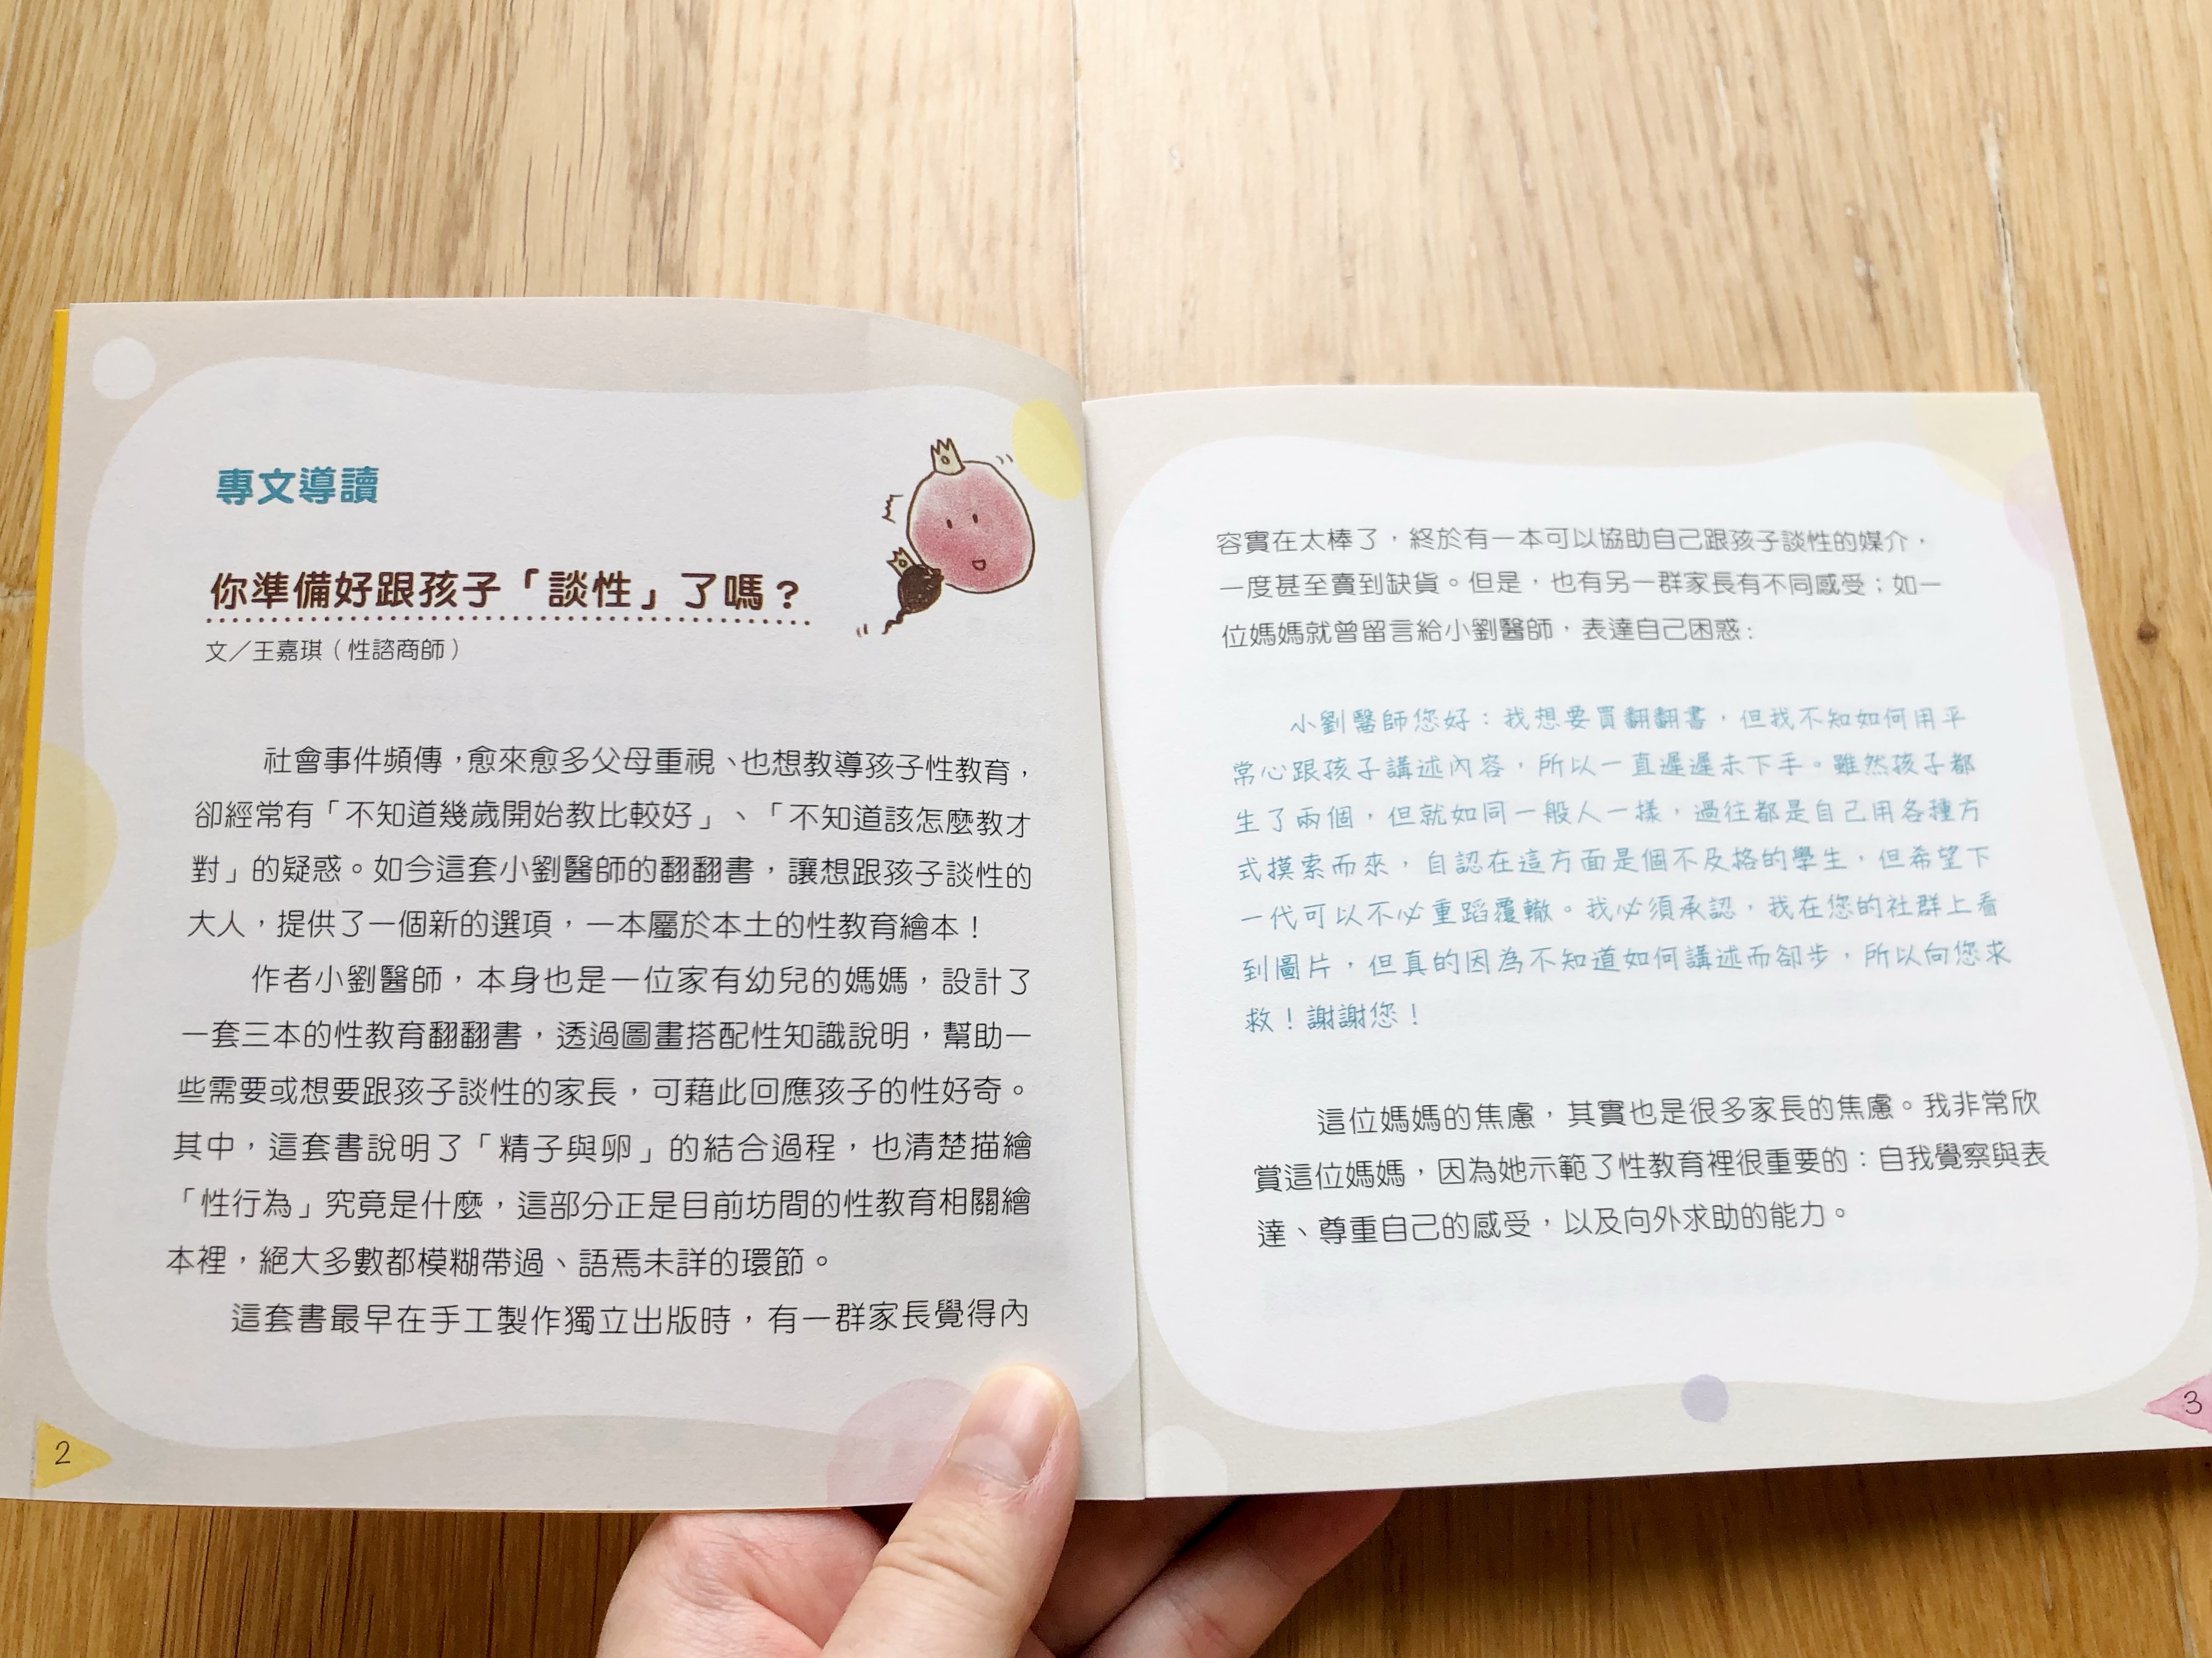 專文導讀
你準備好跟孩子「談性」了嗎？
文／王嘉琪（性諮商師）
社會事件頻傳，愈來愈多父母重視、也想教導孩子性教育，
卻經常有「不知道幾歲開始教比較好」、「不知道該怎麼教才
對」的疑惑。如今這套小劉醫師的翻翻書，讓想跟孩子談性的
大人，提供了一個新的選項，一本屬於本土的性教育繪本！
作者小劉醫師，本身也是一位家有幼兒的媽媽，設計了
一套三本的性教育翻翻書，透過圖畫搭配性知識說明，幫助一
些需要或想要跟孩子談性的家長，可藉此回應孩子的性好奇。
其中，這套書說明了「精子與卵」的結合過程，也清楚描繪
「性行為」究竟是什麼，這部分正是目前坊間的性教育相關繪
本裡，絕大多數都模糊帶過、語焉未詳的環節。
這套書最早在手工製作獨立出版時，有一群家長覺得內
2
容實在太棒了，終於有一本可以協助自己跟孩子談性的媒介，
一度甚至賣到缺貨。但是，也有另一群家長有不同感受；如一
位媽媽就曾留言給小劉醫師，表達自己困惑：
小劉醫師您好：我想要買翻翻書，但我不知如何用平
常心跟孩子講述內容，所以一直遲遲未下手。雖然孩子都
生了兩個，但就如同一般人一樣，過往都是自己用各種方
式摸索而來，自認在這方面是個不及格的學生，但希望下
一代可以不必重蹈覆轍。我必須承認，我在您的社群上看
到圖片，但真的因為不知道如何講述而卻步，所以向您求
救！謝謝您！
這位媽媽的焦慮，其實也是很多家長的焦慮。我非常欣
賞這位媽媽，因為她示範了性教育裡很重要的：自我覺察與表
達、尊重自己的感受，以及向外求助的能力。
3